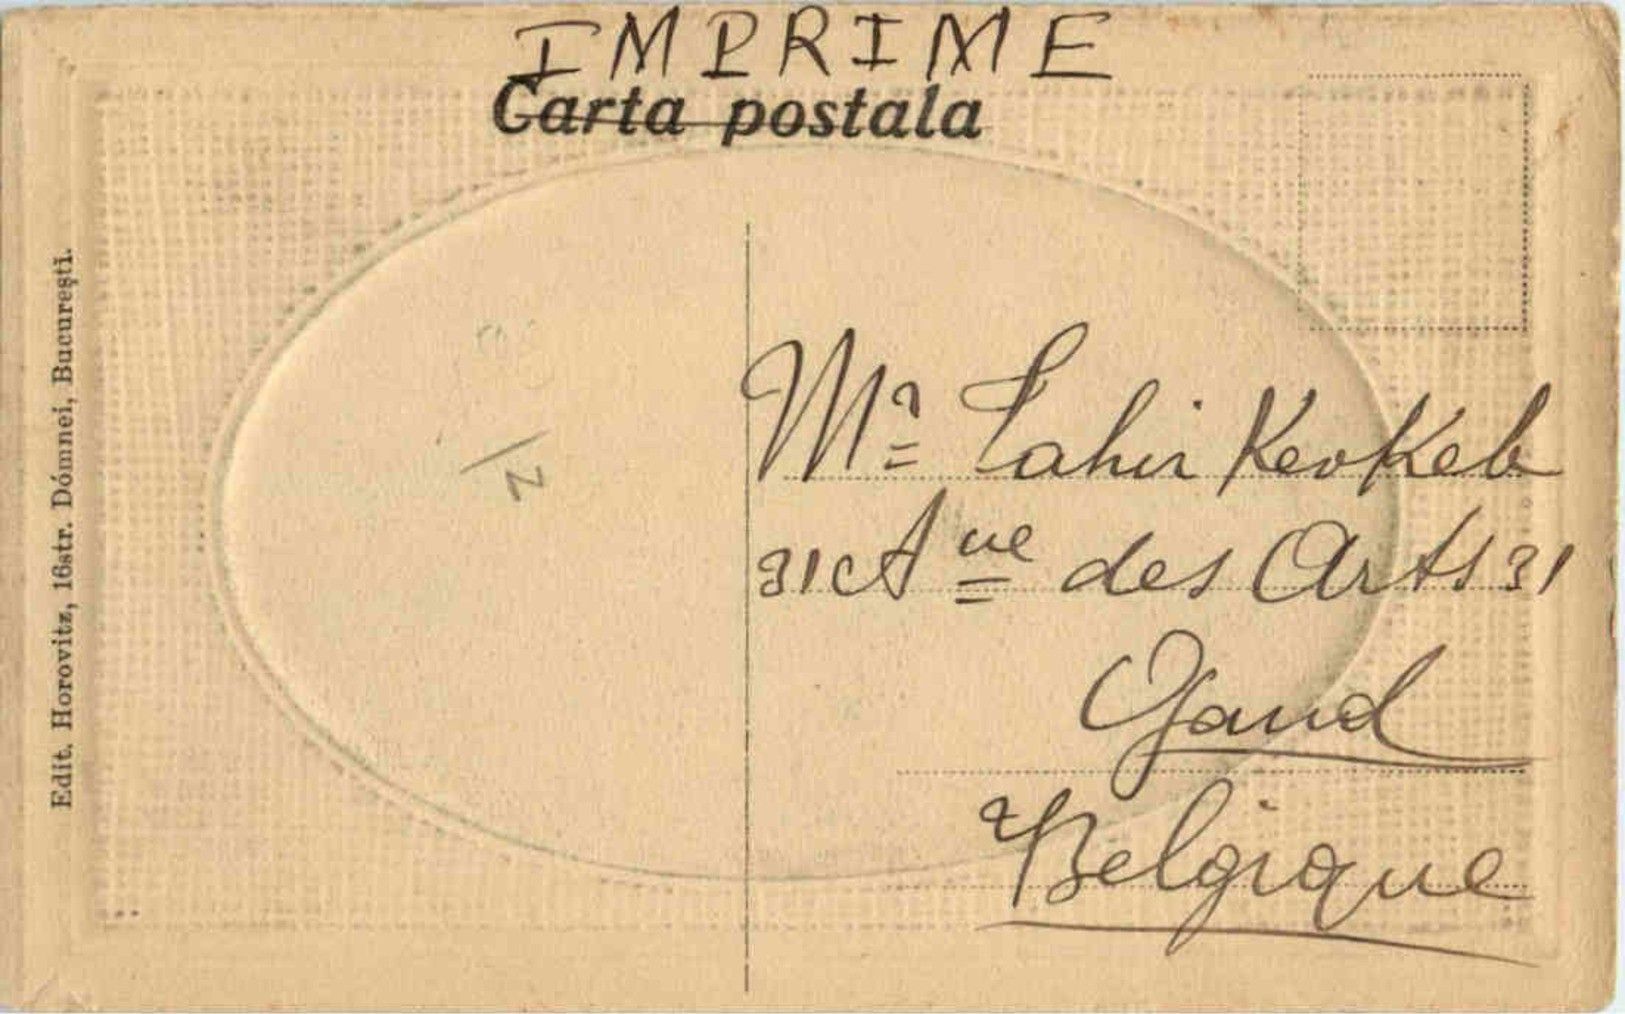 IMPRIME
Carta postala
Edit. Horovitz, 16str. Dómnei, București.
Mr Lahir Kevkeb
31 Aue des Arts 31
Gand
Belgique